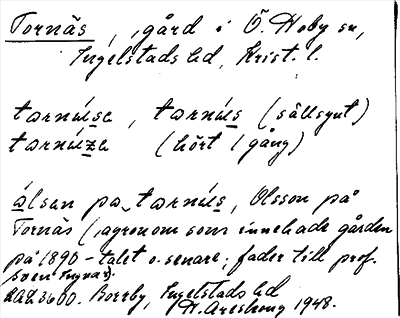 Tornäs, gård i Ö. Hoby sn,
Ingelstads hd, Krist. l.
tarnúsa, tarnús (sällsynt)
tarnúza (hört 1 gång)
ålsan pa tarnús, Olsson på
Tornäs (agronom som innehade gården
på 1890-talet o. senare; fader till prof.
Sven Ingvar).
3600. Borrby, Ingelstads hd
H. Areskoug 1948.